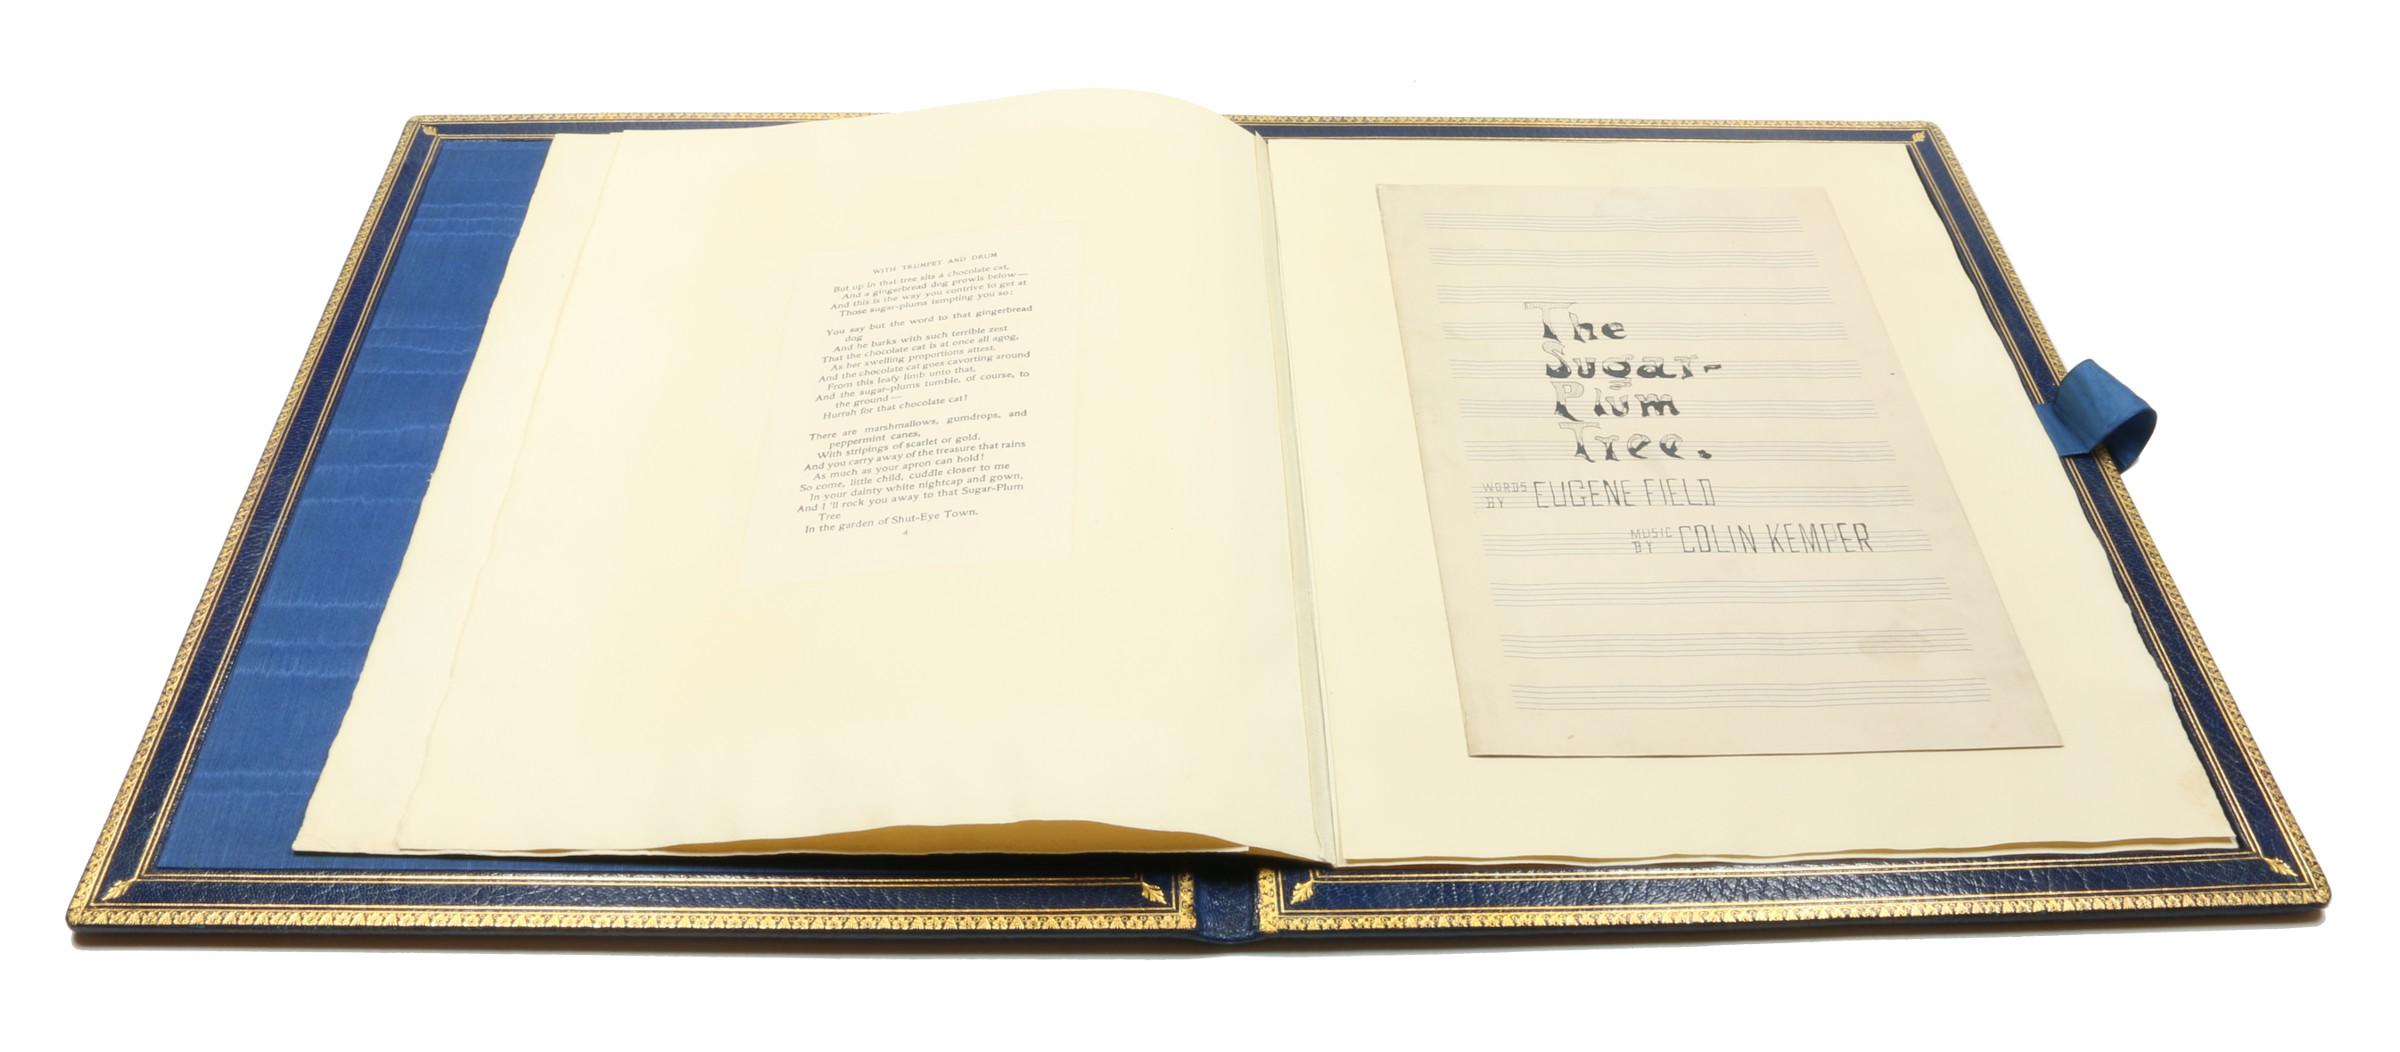 WITH TRUMPET AND DRUM
But up in that tree sits a chocolate cat,
And a gingerbread dog prowls below—
And this is the way you contrive to get at
Those sugar-plums tempting you so:
You say but the word to that gingerbread
dog
And he barks with such terrible zest
That the chocolate cat is at once all agog,
As her swelling proportions attest.
And the chocolate cat goes cavorting around
From this leafy limb unto that,
And the sugar-plums tumble, of course, to
the ground—
Hurrah for that chocolate cat!
There are marshmallows, gumdrops, and
peppermint canes,
With stripings of scarlet or gold,
And you carry away of the treasure that rains
As much as your apron can hold!
So come, little child, cuddle closer to me
In your dainty white nightcap and gown,
And I 'll rock you away to that Sugar-Plum
Tree
In the garden of Shut-Eye Town.
4
The
Sugar-
Plum
Tree.
WORDS BY EUGENE FIELD
MUSIC BY COLIN KEMPER